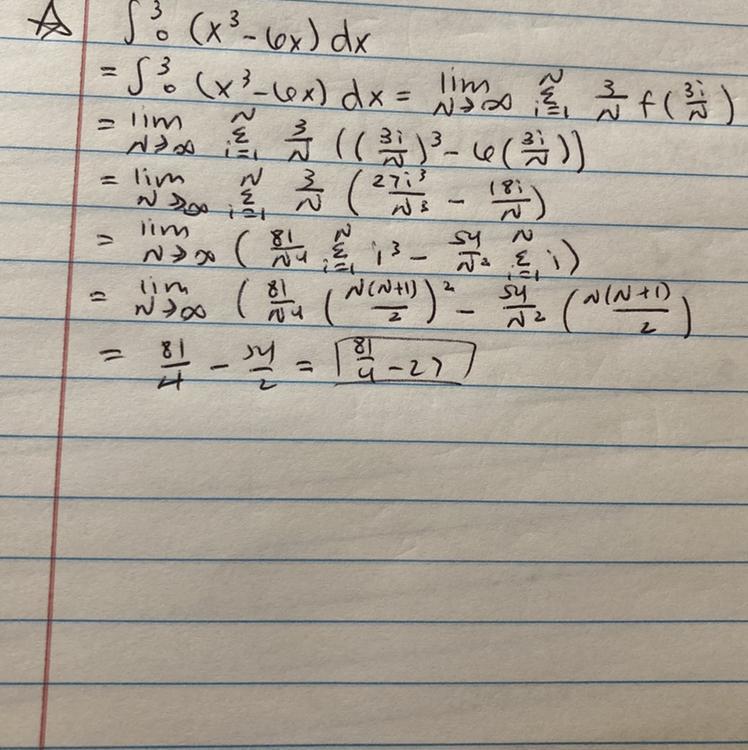 ☆ ∫³₀ (x³ - 6x) dx
= ∫³₀ (x³ - 6x) dx = lim N→∞ Σ i=1 N 3/N f(3i/N)
= lim N→∞ Σ i=1 N 3/N ((3i/N)³ - 6(3i/N))
= lim N→∞ Σ i=1 N 3/N (27i³/N³ - 18i/N)
= lim N→∞ (81/N⁴ Σ i=1 N i³ - 54/N² Σ i=1 N i)
= lim N→∞ (81/N⁴ (N(N+1)/2)² - 54/N² (N(N+1)/2)
= 81/4 - 54/2 = 81/4 - 27